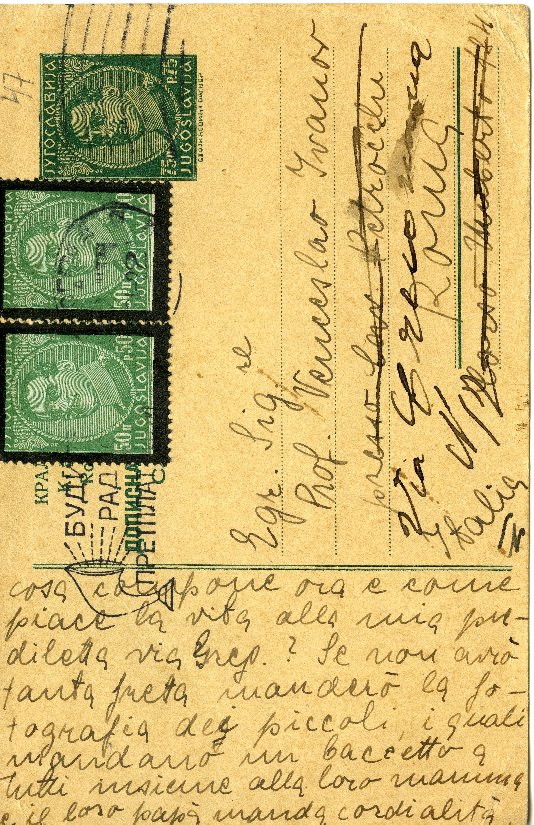 47
ЈУГОСЛАВИЈА
JUGOSLAVIJA
JUGOSLAVIJA
JUGOSLAVIJA
БУДИ
РАД
ПРЕТПЛА
ДОПИСНА
КРА
Egr. Sigre
Prof. Venceslao Ivanov
presso Petrocchi
Via
Roma
Corso Umberto
Italia
cosa compone ora e come
piace la vita alla mia pre-
diletta via Greg.? Se non avrò
tanta freta manderò la fo-
tografia dei piccoli, i quali
mandano un baccetto a
tutti insieme alla loro mamma
e il loro papà manda cordialità